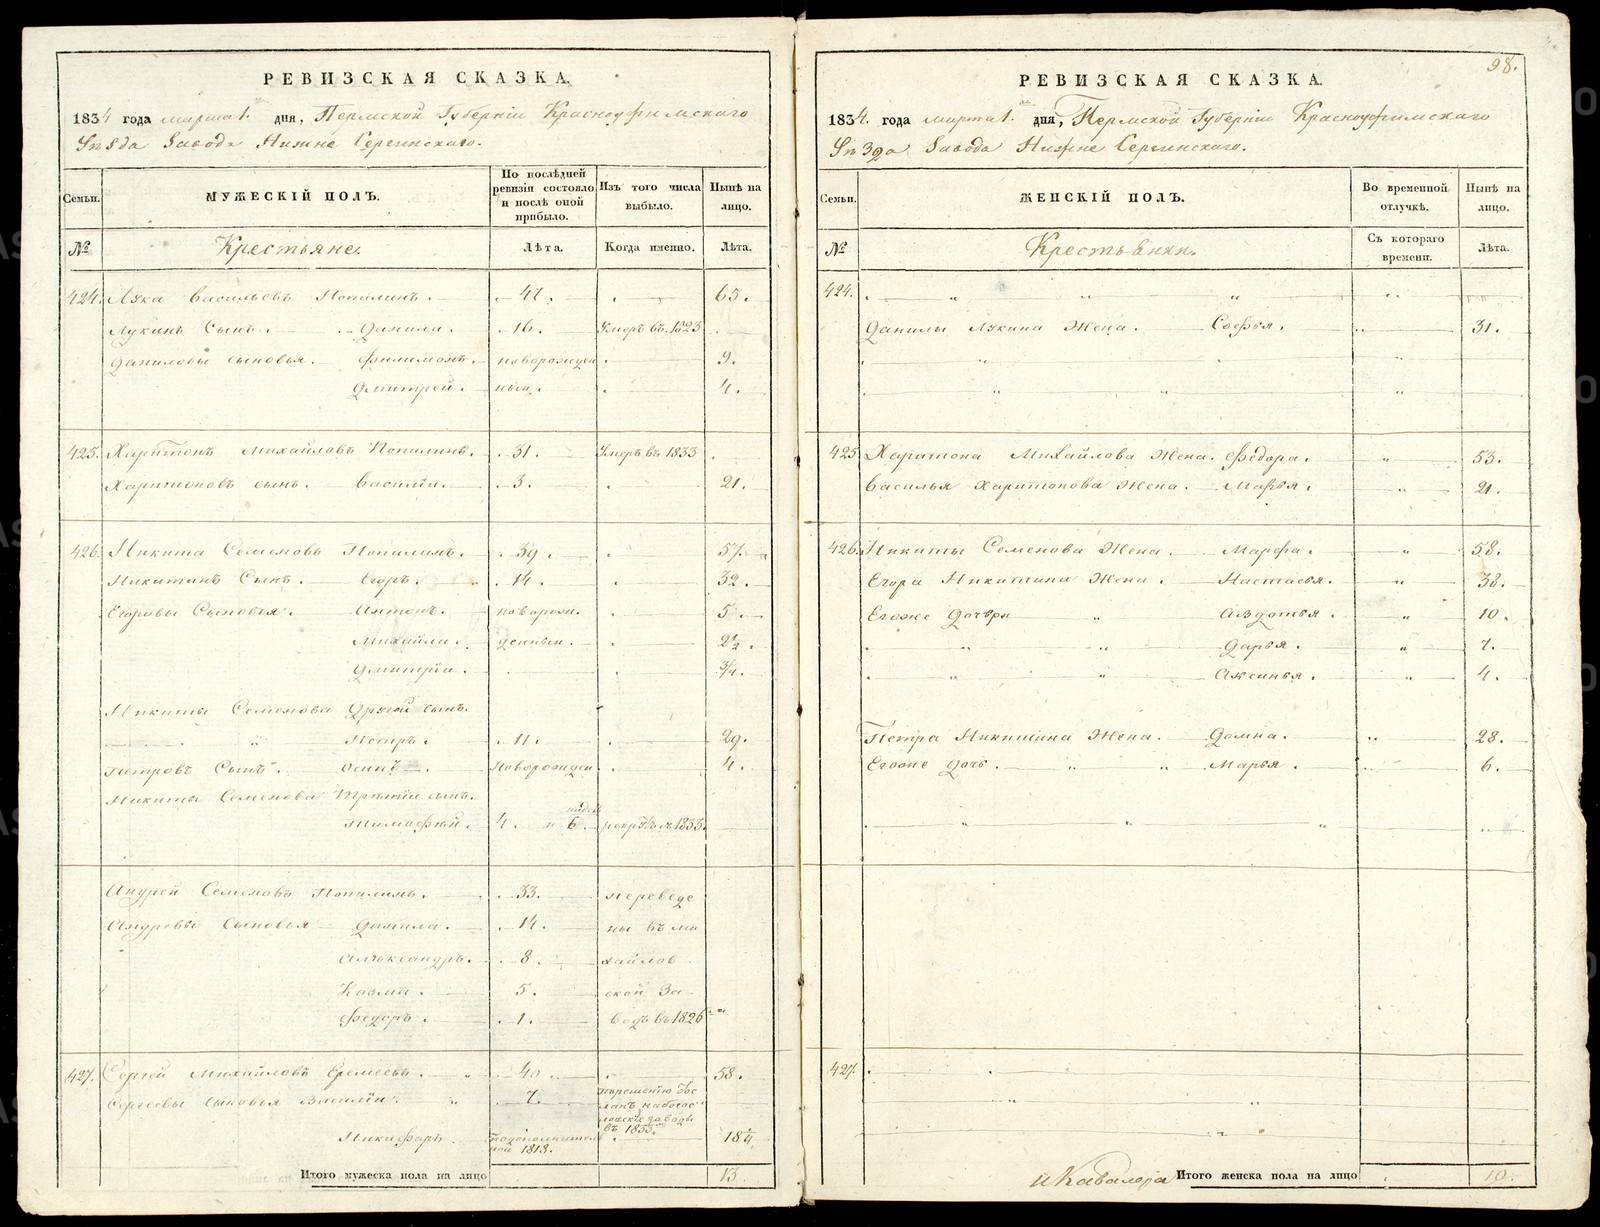 РЕВИЗСКАЯ СКАЗКА.
1834 года марта 1. дня, Пермской Губерніи Красноуфимскаго
Уѣзда Завода Нижне Сергинскаго.
Семьи. МУЖЕСКІЙ ПОЛЪ. По послѣдней ревизіи состояло и послѣ оной прибыло. Изъ того числа выбыло. Нынѣ на лицо.
№ Крестьяне. Лѣта. Когда именно. Лѣта.
424. Лука Васильевъ Попилинъ. 47. 65.
Лукинъ Сынъ. Данила. 16. Умеръ въ 1823
Даниловы сыновья. Филимонъ. новорожден 9.
Дмитрей. ныи. 4.
425. Харитонъ Михайловъ Попилинъ. 31. Умеръ въ 1833
Харитоновъ сынъ. Василіи. 3. 21.
426. Никита Семеновъ Попилинъ. 39. 57.
Никитинъ Сынъ. Егоръ. 14. 32.
Егоровы Сыновья. Антонъ. новорож. 5.
Михайла. денныи. 2½.
Дмитріи. 3/4.
Никиты Семенова Другой сынъ.
Петръ. 11. 29.
Петровъ Сынъ. Осипъ. Новорожден. 4.
Никиты Семенова Третіи сынъ.
Тимофей. 4. и 6. рекрутъ въ 1833.
Андрей Семеновъ Попилинъ. 33. переведе
Андреевы сыновья Данила. 14. ны въ ми
Александръ. 8. хайлов
Козма. 5. ской За
Федоръ. 1. водъ въ 1826
427. Сергей Михайловъ Еремеевъ. 40. 58.
Сергеевы сыновья Василіи. 7. порешению Сос
ланъ на богос
ловскіе заводы
въ 1833.
Никифаръ.
ной 1818.
Итого мужеска пола на лицо 13.
98.
РЕВИЗСКАЯ СКАЗКА.
1834. года марта 1. дня, Пермской Губерніи Красноуфимскаго
Уѣзда Завода Нижне Сергинскаго.
Семьи. ЖЕНСКІЙ ПОЛЪ. Во временной отлучкѣ. Нынѣ на лицо.
№ Крестьянки. Съ котораго времени. Лѣта.
424.
Данилы Лукина Жена. Софья. 31.
425. Харитона Михайлова Жена. Федора. 53.
Василья Харитонова Жена. Марья. 21.
426. Никиты Семенова Жена. Марфа. 58.
Егора Никитина Жена. Настасья. 38.
Егоже Дочери Авдотья. 10.
Дарья. 7.
Аксинья. 4.
Петра Никитина Жена. Домна. 28.
Егоже дочь. Марья. 6.
427.
и Кавалера Итого женска пола на лицо 10.